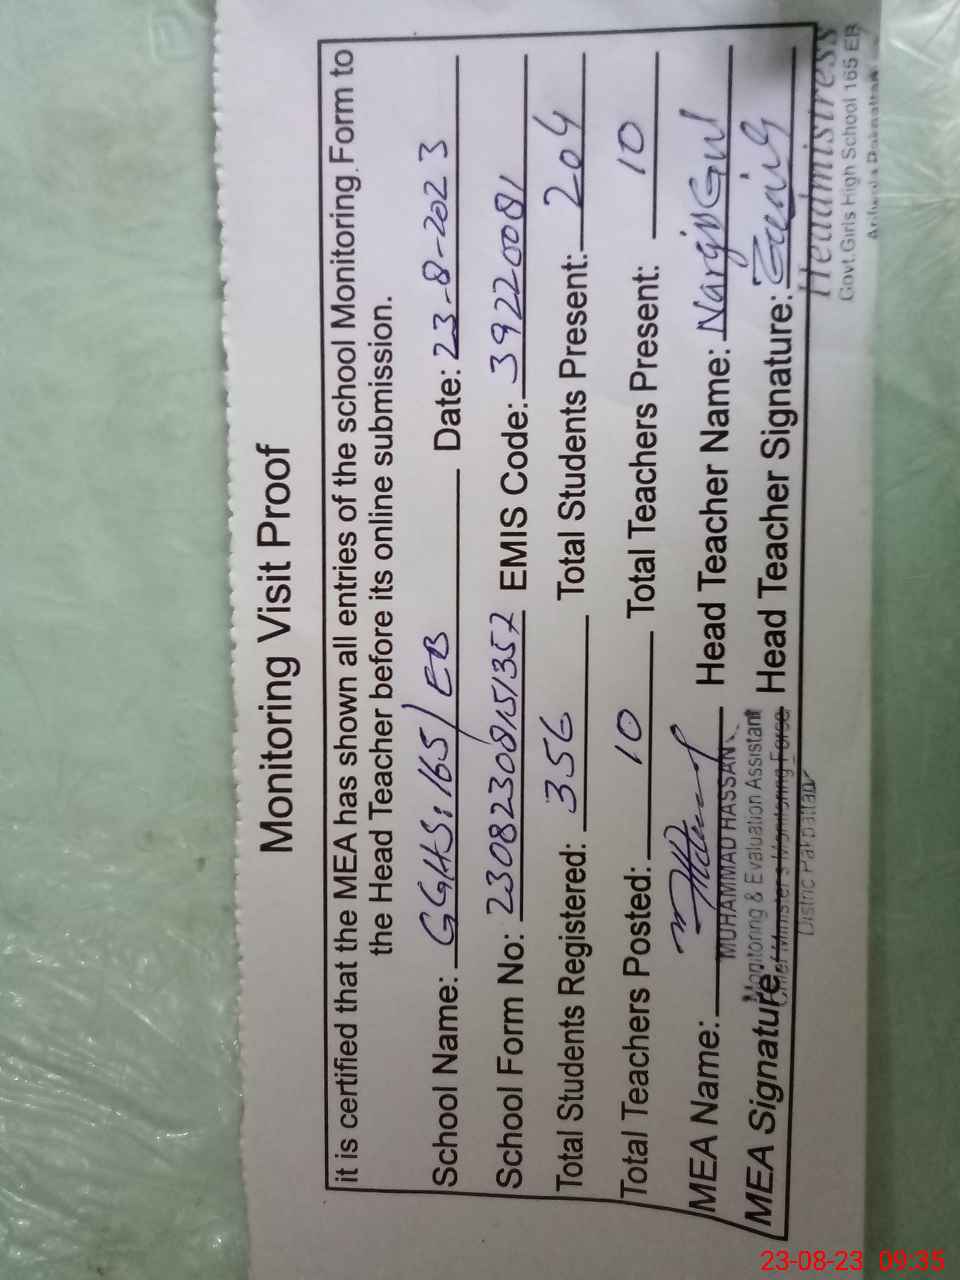 Monitoring Visit Proof
it is certified that the MEA has shown all entries of the school Monitoring Form to
the Head Teacher before its online submission.
School Name: GGHS: 165/EB Date: 23-8-2023
School Form No: EMIS Code: 39220081
Total Students Registered: 356 Total Students Present: 204
Total Teachers Posted: 10 Total Teachers Present: 10
MEA Name: Head Teacher Name: Nargis Gul
MUHAMMAD HASSAN
MEA Signature: Head Teacher Signature:
Monitoring & Evaluation Assistant
Chief Minister's Monitoring Force
District Pakpattan
Headmistress
Govt. Girls High School 165 EB
23-08-23 09:35